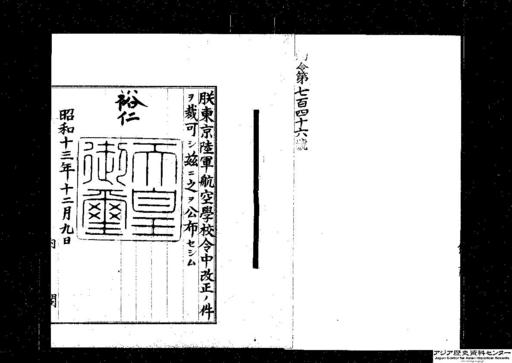 令第七百四十六號
朕東京陸軍航空學校令中改正ノ件
ヲ裁可シ茲ニ之ヲ公布セシム
裕仁
天皇御璽
昭和十三年十二月九日
内閣
アジア歴史資料センター
Japan Center for Asian Historical Records